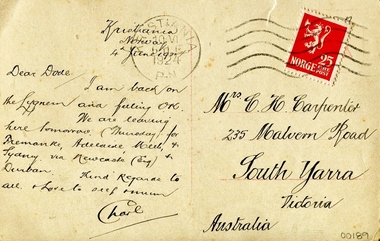 Kristiania
Norway
4th June 1924
Dear Dode
I am back on
the and feeling OK.
We are leaving
here tomorrow (Thursday) for
Fremantle, Adelaide Melb, &
Sydney via Newcastle (Eng) &
Durban.
Kind Regards to
all & love to
KRISTIANIA
1924
NORGE
25
POST
Mrs C. H. Carpenter
235 Malvern Road
South Yarra
Victoria
Australia
00189